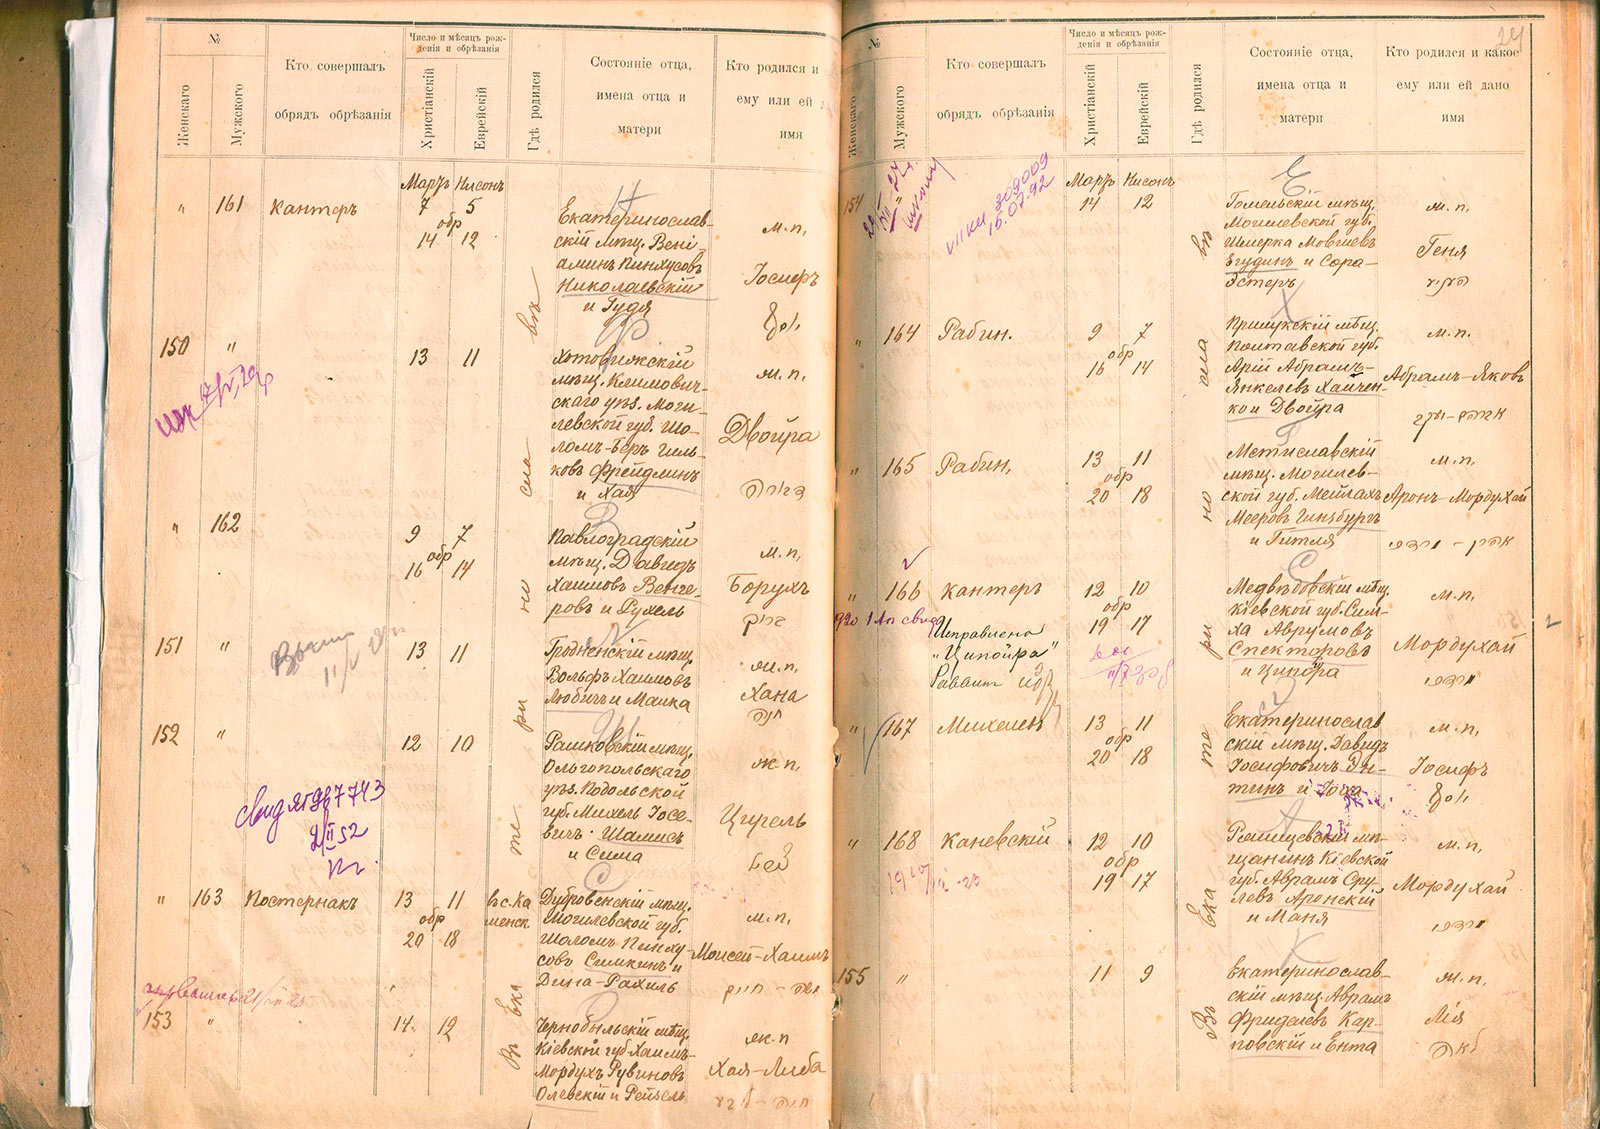 №
Женскаго
Мужского
Кто совершалъ
обрядъ обрѣзанія
Число и мѣсяцъ рож-
денія и обрѣзанія
Христіанскій
Еврейскій
Гдѣ родился
Состояніе отца,
имена отца и
матери
Кто родился и
ему или ей
имя
Мартъ Нисонъ
" 161 Кантеръ
7 5
обр
14 12
Екатеринослав-
скій мѣщ. Вені-
аминъ Пинхусовъ
Николаевскій
и Гудя
м.п.
Іосифъ
150 "
13 11
Хотовижскій
мѣщ. Климович-
скаго уѣз. Моги-
левской губ. Шо-
ломъ-Беръ Гиль-
ковъ Фрейдлинъ
и Хая
ж.п.
Двойра
" 162
9 7
обр
16 14
Павлоградскій
мѣщ. Давидъ
Хаимовъ Венге-
ровъ и Рухель
м.п.
Борухъ
ברוך
151 "
13 11
Гродненскій мѣщ.
Вольфъ Хаимовъ
Любичъ и Малка
ж.п.
Хана
חנה
152 "
12 10
Рашковскій мѣщ.
Ольгопольскаго
уѣз. Подольской
губ. Михель Іосе-
вичъ Шамисъ
и Сима
ж.п.
Цирель
2/II 52
" 163 Постернакъ
13 11
обр
20 18
въ с. Ка
менск.
Дубровенскій мѣщ.
Могилевской губ.
Шоломъ Пинху-
совъ Симкинъ и
Дина-Рахиль
м.п.
Моисей-Хаимъ
משה - חיים
153 "
14 12
Чернобыльскій мѣщ.
Кіевской губ. Хаимъ-
Мордухъ Рувиновъ
Олевскій и Рейзель
ж.п
Хая-Либа
Въ Екатеринославѣ
24
№
Женскаго
Мужского
Кто совершалъ
обрядъ обрѣзанія
Число и мѣсяцъ рож-
денія и обрѣзанія
Христіанскій
Еврейскій
Гдѣ родился
Состояніе отца,
имена отца и
матери
Кто родился и какое
ему или ей дано
имя
209009
15.07.92
Мартъ Нисонъ
154
14 12
Гомельскій мѣщ.
Могилевской губ.
Шмерка Мовшевъ
Егудинъ и Сора-
Эстеръ
ж.п.
Геня
" 164 Рабин.
9 7
обр
16 14
Прилукскій мѣщ.
Полтавской губ.
Арій Абрамъ-
Янкелевъ Хайчен-
ко и Двойра
м.п.
Абрамъ-Яковъ
" 165 Рабин.
13 11
обр
20 18
Мстиславскій
мѣщ. Могилев-
ской губ. Мейлахъ
Мееровъ Гинзбургъ
и Гитля
м.п.
Аронъ-Мордухай
אהרן - מרדכי
" 166 Кантеръ
12 10
обр
19 17
Исправлено
"Ципойра"
Раввинъ
Медвѣдовскій мѣщ.
Кіевской губ. Сим-
ха Аврумовъ
Спекторовъ
и Ципора
м.п.
Мордухай
מרדכי
" 167 Михелев
13 11
обр
20 18
Екатеринослав
скій мѣщ. Давидъ
Іосифовичъ Эн-
тинъ и
м.п.
Іосифъ
" 168 Каневскій
12 10
обр
19 17
Ромищевскій мѣ-
щанинъ Кіевской
губ. Аврамъ Сру-
левъ Аронскій
и Маня
м.п.
Мордухай
מרדכי
155 "
11 9
Екатеринослав-
скій мѣщ. Аврамъ
Фридлевъ Кар-
повскій и Ента
ж.п.
Лія
לאה
Въ Екатеринославѣ